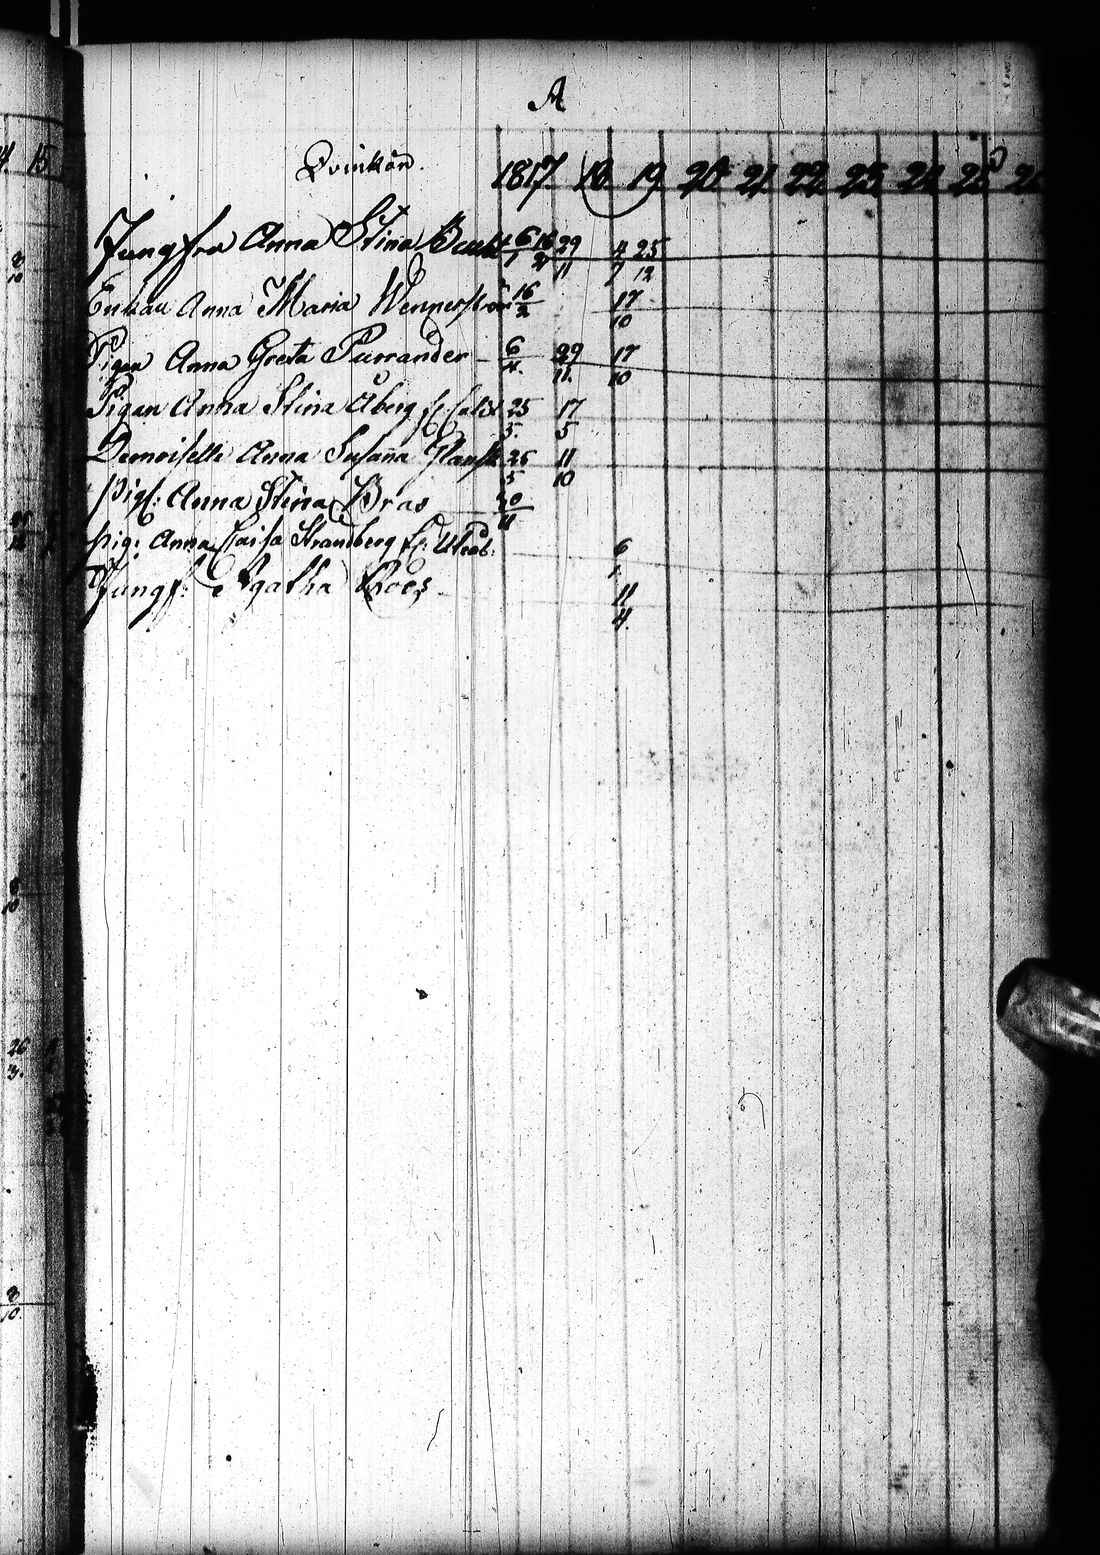 A
Qvinkön. 1817 18 19 20 21 22 23 24 25 26
Jungfru Anna Stina 6/1 16/2 29/11 4/7 25/12
Enkan Anna Maria Wennerström 16/2 17/10
Pigan Anna Greta Purrander 6/4. 29/11. 17/10
Pigan Anna Stina Åberg 25/5. 17/5
Demoiselle Anna Susanna 25/5 11/10
Pig: Anna Stina Bras 20/11
Pig: Anna Caisa Strandberg 6/1
Jungf: Agatha 11/4